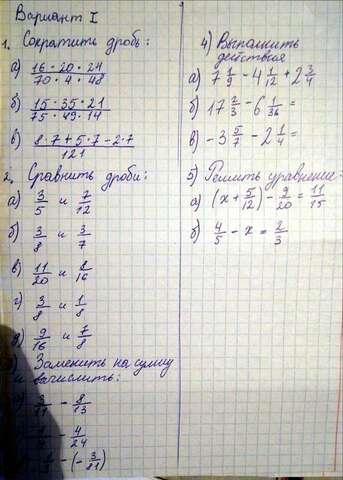 Вариант I
1. Сократить дробь:
а) 16·20·24 / 70·4·48
б) 15·35·21 / 75·49·14
в) 8·7+5·7-2·7 / 121
2. Сравнить дроби:
а) 3/5 и 7/12
б) 3/8 и 3/7
в) 11/20 и 8/16
г) 3/8 и 1/8
д) 9/16 и 7/8
Заменить на сумму
и вычислить:
3/11 - 8/13
- 4/24
- (- 3/21)
4) Выполнить
действия
а) 7 1/9 - 4 1/12 + 2 3/4
б) 17 2/3 - 6 1/36 =
в) -3 5/7 - 2 1/4 =
5) Решить уравнение:
а) (x + 5/12) - 9/20 = 11/15
б) 4/5 - x = 2/3